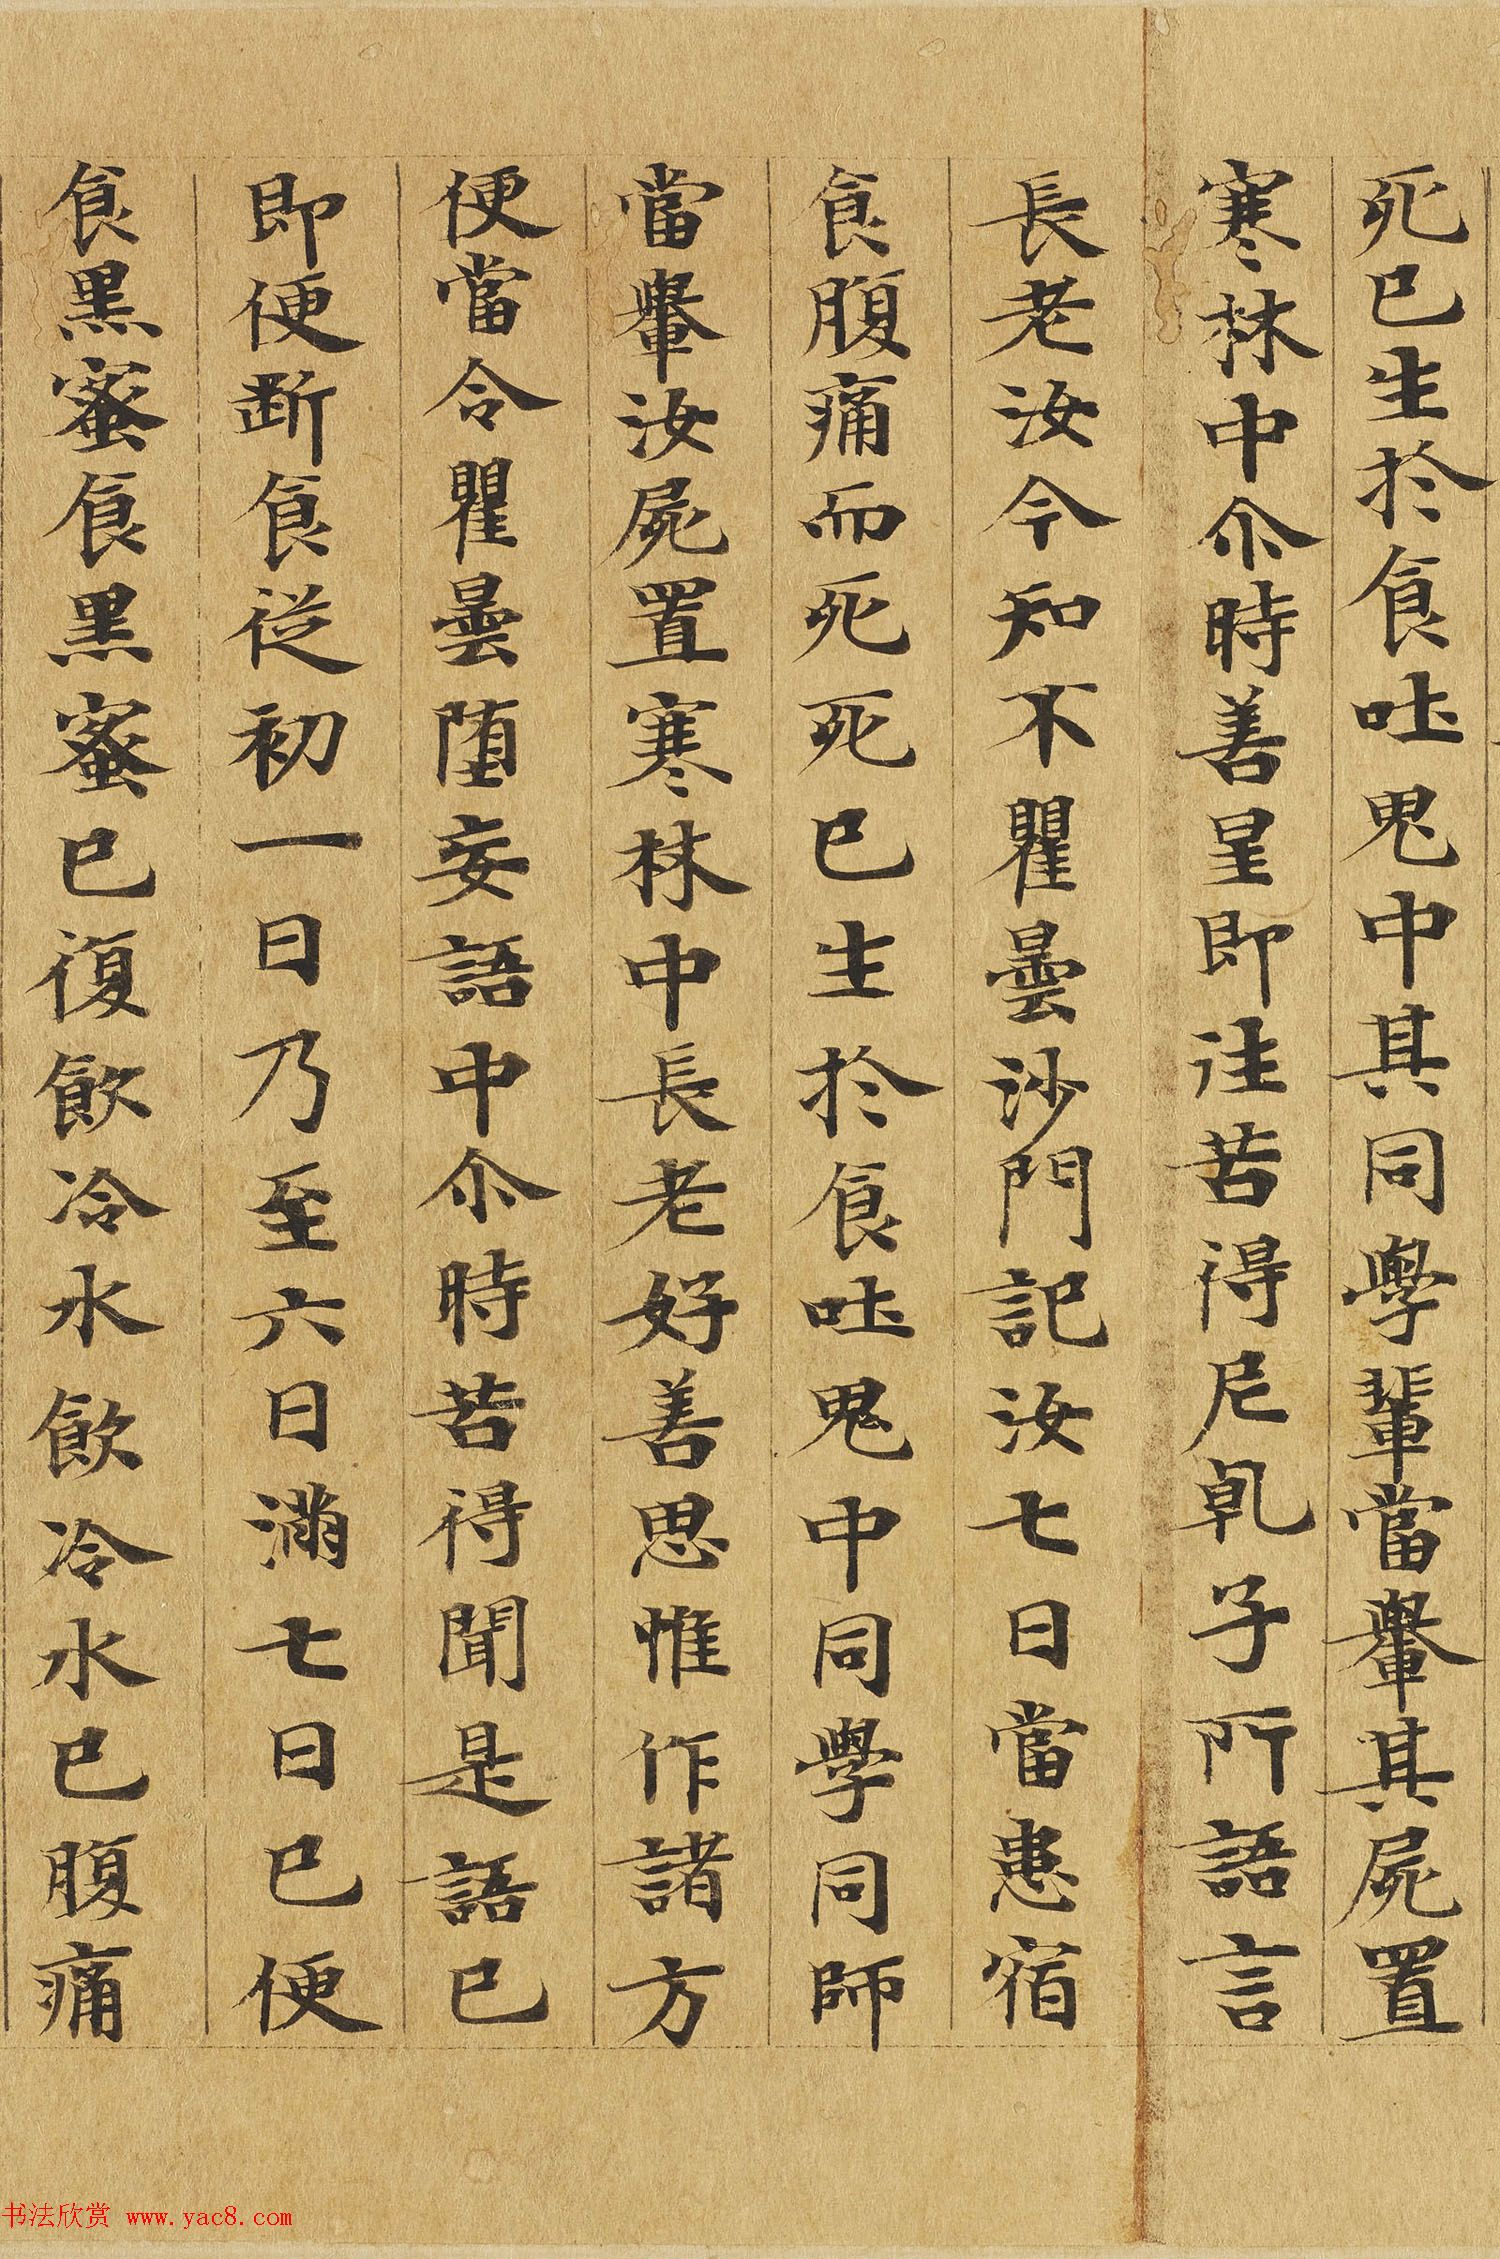 死已生於食吐鬼中其同學輩當轝其屍置
寒林中尒時善星即往苦得尼乹子所語言
長老汝今知不瞿曇沙門記汝七日當患宿
食腹痛而死死已生於食吐鬼中同學同師
當轝汝屍置寒林中長老好善思惟作諸方
便當令瞿曇堕妄語中尒時苦得聞是語已
即便断食從初一日乃至六日滿七日已便
食黒蜜食黒蜜已復飲冷水飲冷水已腹痛
书法欣赏 www.yac8.com